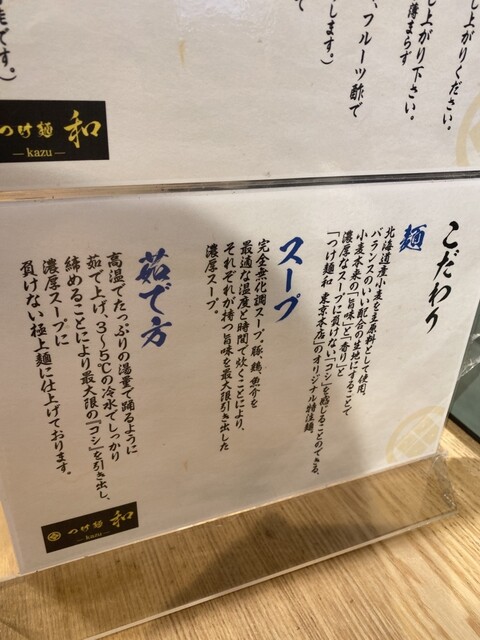 し上がりください。
し上がり下さい。
薄まらず
、フルーツ酢で
します。)
て
走です。)
つけ麺 和
— kazu —
こだわり
麺
北海道産小麦を主原料として使用。
バランスのいい配合の生地にすることで
小麦本来の「旨味」と「香り」と
濃厚なスープに負けない「コシ」を感じることのできる、
「つけ麺和 東京本店」のオリジナル特注麺。
スープ
完全無化調スープ。豚、鶏、魚介を
最適な温度と時間で炊くことにより、
それぞれが持つ旨味を最大限引き出した
濃厚スープ。
茹で方
高温でたっぷりの湯量で踊るように
茹で上げ、3〜5℃の冷水でしっかり
締めることにより最大限の『コシ』を引き出し、
濃厚スープに
負けない極上麺に仕上げております。
つけ麺 和
— kazu —